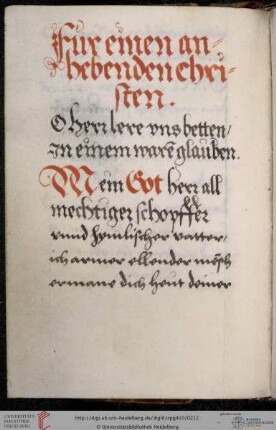 Für einen an-
hebenden chri-
sten.
O herr lere vns betten/
In einem warē glauben.
Mein Got herr all
mechtiger schopffer
vnnd hymlischer vatter,
ich armer ellender mēsch
ermane dich heut deiner
UNIVERSITÄTS-
BIBLIOTHEK
HEIDELBERG
http://digi.ub.uni-heidelberg.de/diglit/cpg450/0212
© Universitätsbibliothek Heidelberg